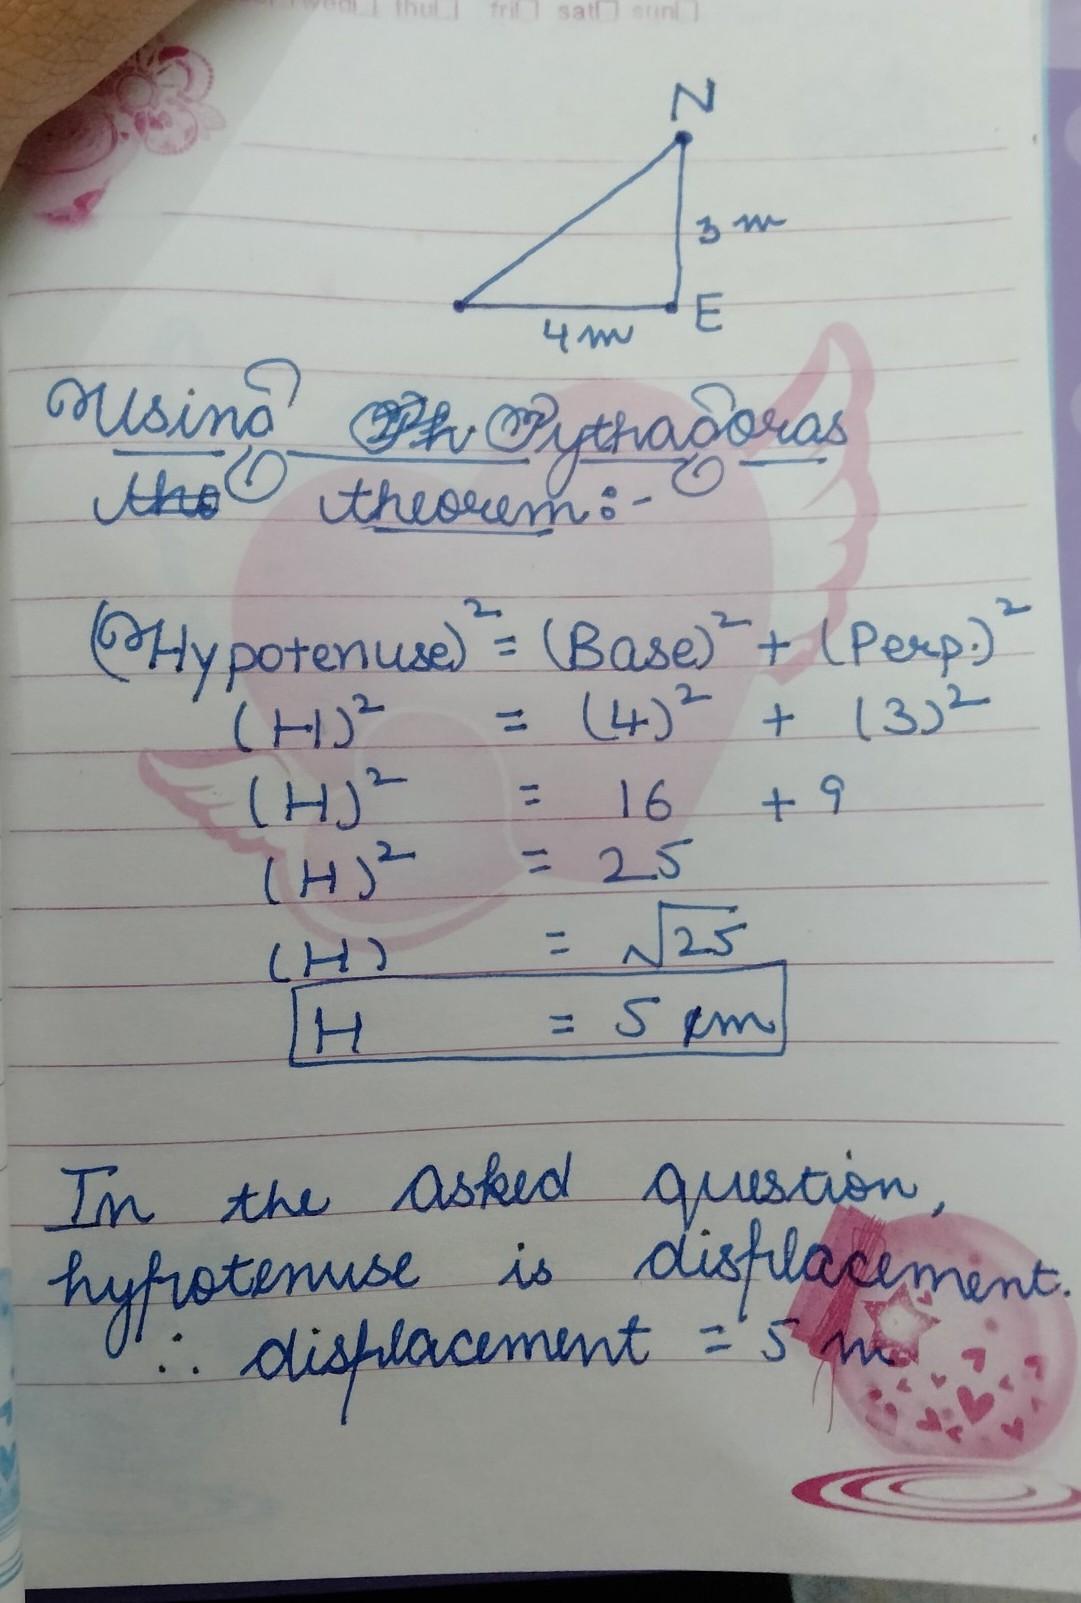 wed thu fri sat sun
N
3 m
E
4 m
Using Pythagoras
the theorem:-
(Hypotenuse)² = (Base)² + (Perp.)²
(H)² = (4)² + (3)²
(H)² = 16 + 9
(H)² = 25
(H) = √25
H = 5 m
In the asked question,
hypotenuse is displacement.
∴ displacement = 5 m